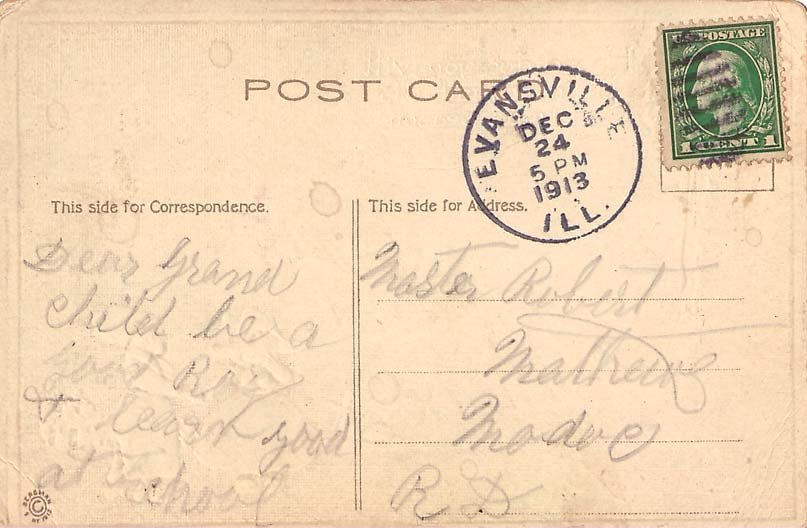 POST CARD
U.S. POSTAGE
1 CENT 1
EVANSVILLE
DEC
24
5 PM
1913
ILL.
This side for Correspondence.
Dear Grand
child be a
good Boy
& learn good
at school
This side for Address.
Master Robert
Mathews
Modoc
R D
BERGMAN
©
NY 1913